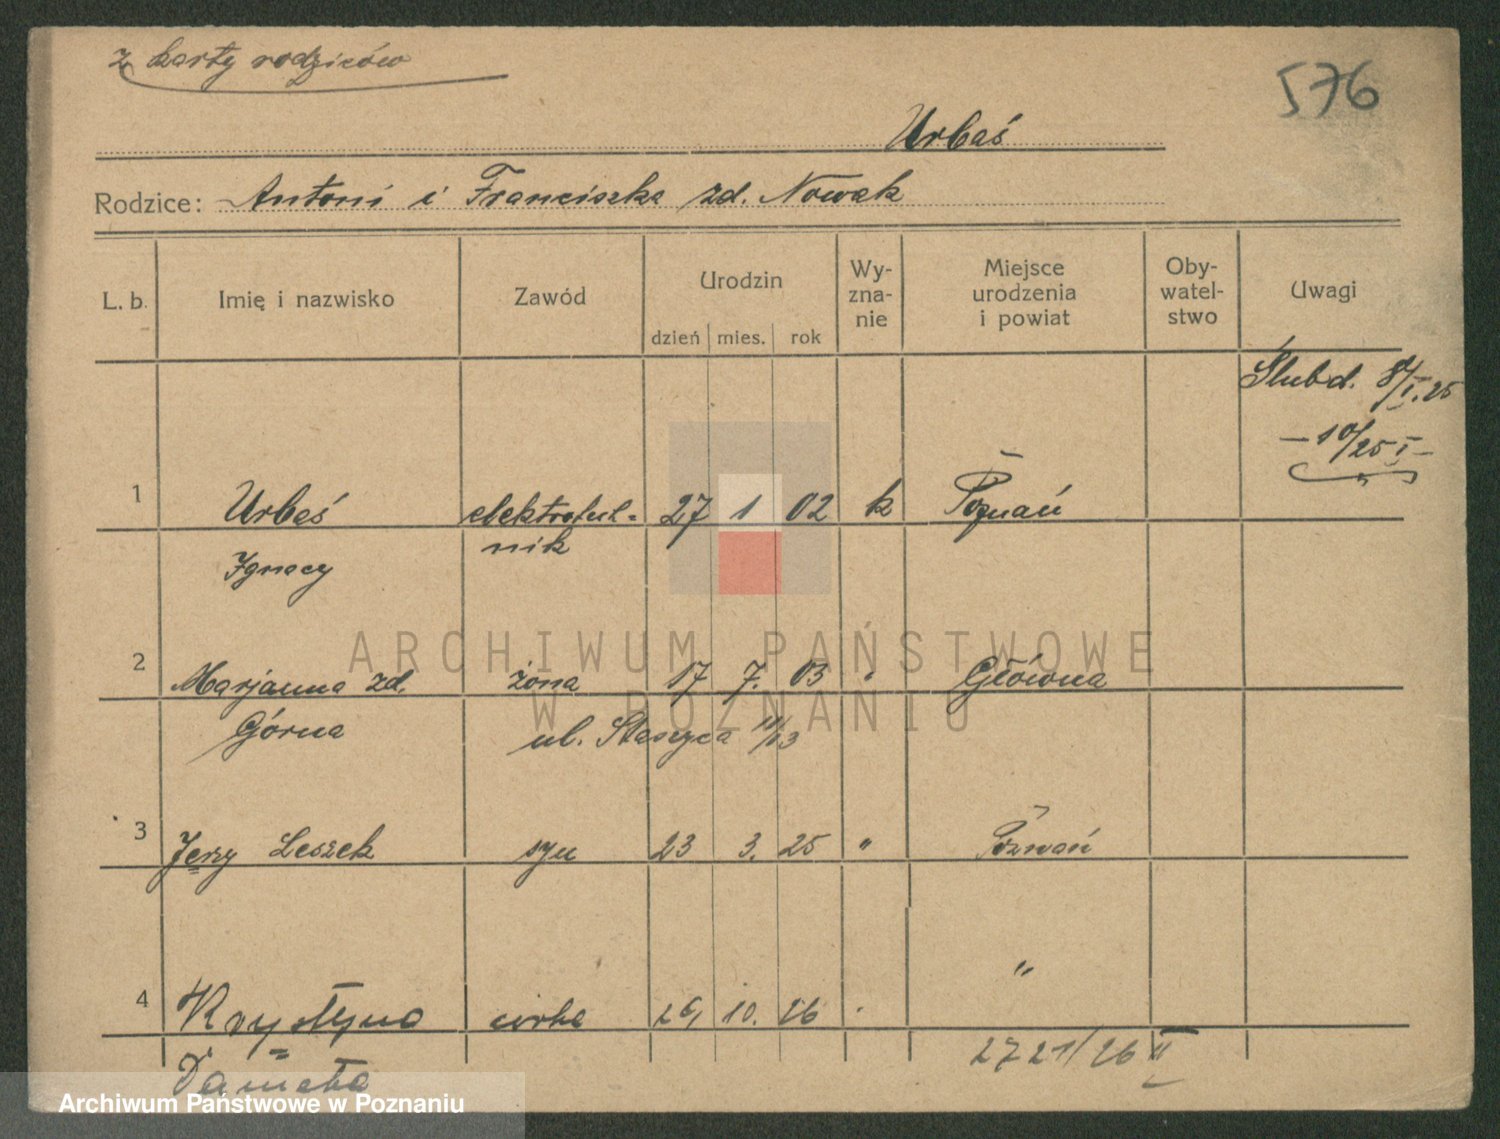 z karty rodziców
576
Urbaś
Rodzice: Antoni i Franciszka zd. Nowak
L. b. Imię i nazwisko Zawód Urodzin Wy- Miejsce Oby- Uwagi
zna- urodzenia watel-
nie i powiat stwo
dzień mies. rok
Ślub d. 8/I. 25
— 10/25 I —
1 Urbaś elektrotech- 27 1 02 k Poznań
Ignacy nik
2 Marjanna zd. żona 17 7. 03 " Główna
Górna ul. Staszyca 11/13
3 Jerzy Leszek syn 23 3. 25 " Poznań
4 Krystyna córka 26, 10. 26 "
Daniela 2721/26 II
ARCHIWUM PAŃSTWOWE
W POZNANIU
Archiwum Państwowe w Poznaniu